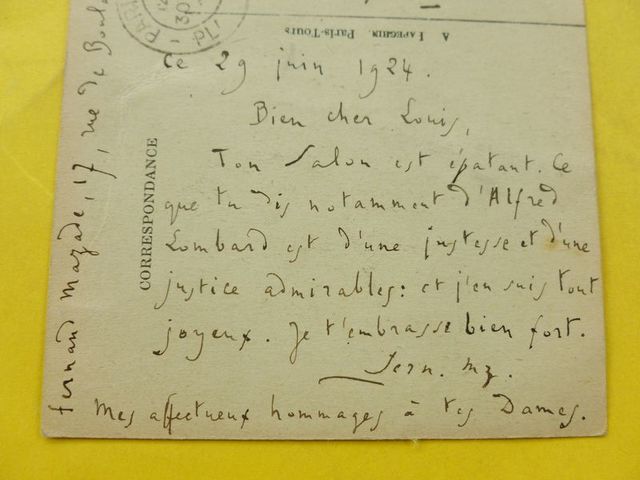 A PAPEGHIN. Paris-Tours
PARI
30
Pl.
Ce 29 juin 1924.
Bien cher Louis,
Ton Salon est épatant. Ce
que tu dis notamment d'Alfred
Lombard est d'une justesse et d'une
justice admirables: et j'en suis tout
joyeux. Je t'embrasse bien fort.
Fern. Mz.
Mes affectueux hommages à tes Dames.
CORRESPONDANCE
Fernand Mazade, 17, rue de Boula